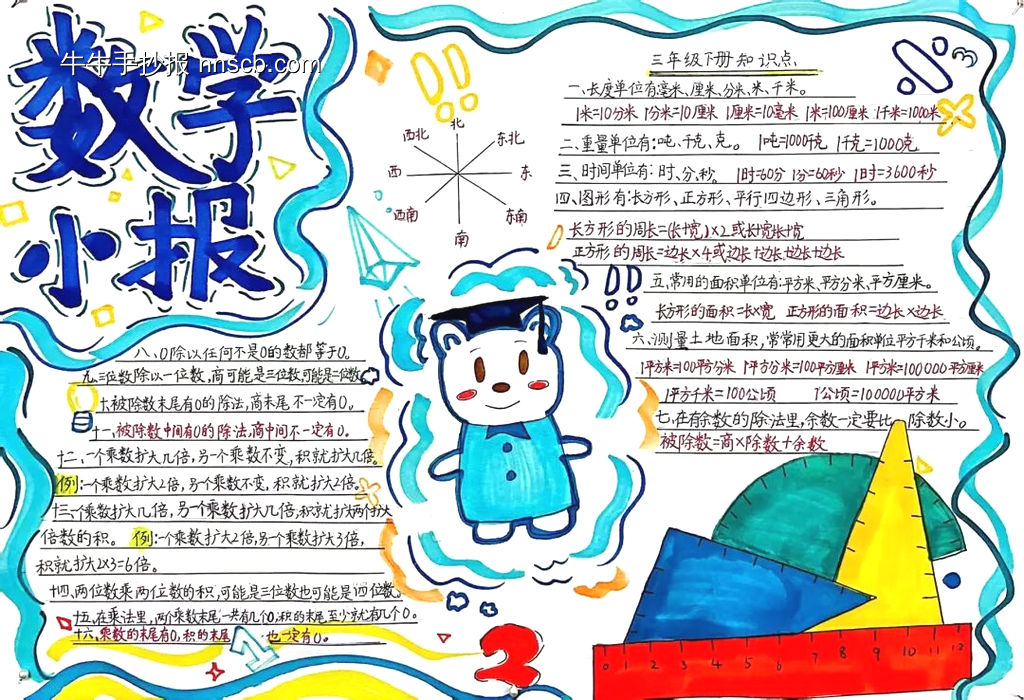 数学
小报
牛牛手抄报 nnscb.com
北
西北
东北
西
东
西南
东南
南
三年级下册知识点
一、长度单位有毫米、厘米、分米、米、千米。
1米=10分米 1分米=10厘米 1厘米=10毫米 1米=100厘米 1千米=1000米
二、重量单位有:吨、千克、克。 1吨=1000千克 1千克=1000克
三、时间单位有:时、分、秒, 1时=60分 1分=60秒 1时=3600秒
四、图形有:长方形、正方形、平行四边形、三角形。
长方形的周长=(长+宽)×2或长+宽+长+宽
正方形的周长=边长×4或边长+边长+边长+边长
五、常用的面积单位有:平方米、平方分米、平方厘米。
长方形的面积=长×宽 正方形的面积=边长×边长
六、测量土地面积,常常用更大的面积单位平方千米和公顷。
1平方米=100平方分米 1平方分米=100平方厘米 1平方米=100000平方厘米
1平方千米=100公顷 1公顷=100000平方米
七、在有余数的除法里,余数一定要比 除数小。
被除数=商×除数+余数
八、0除以任何不是0的数都等于0。
九、三位数除以一位数,商可能是三位数可能是一位数。
十、被除数末尾有0的除法,商末尾不一定有0。
十一、被除数中间有0的除法,商中间不一定有0。
十二、一个乘数扩大几倍,另一个乘数不变,积就扩大几倍。
例:一个乘数扩大2倍,另个乘数不变,积就扩大2倍。
十三一个乘数扩大几倍,另一个乘数扩大几倍,积就扩大两个扩大
倍数的积。 例:一个乘数扩大2倍,另个乘数扩大3倍,
积就扩大2×3=6倍。
十四、两位数乘两位数的积,可能是三位数也可能是四位数。
十五、在乘法里,两个乘数末尾一共有几个0,积的末尾至少就有几个0。
十六、乘数的末尾有0,积的末尾 也一定有0。
1
2
0 1 2 3 4 5 6 7 8 9 10 11 12